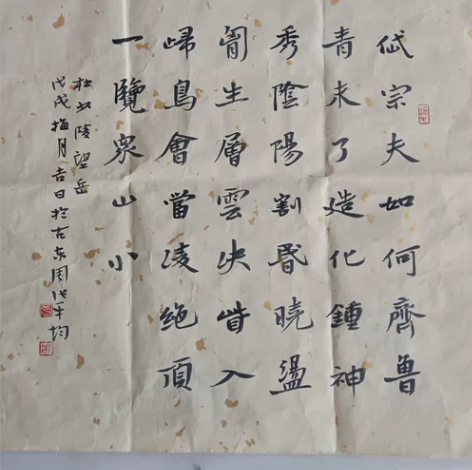 岱宗夫如何齊魯
青未了造化鍾神
秀陰陽割昬曉盪
胷生層雲决眥入
歸鳥會當凌绝頂
一覽衆山小
杜少陵望岳
戊戌梅月吉日於古东周